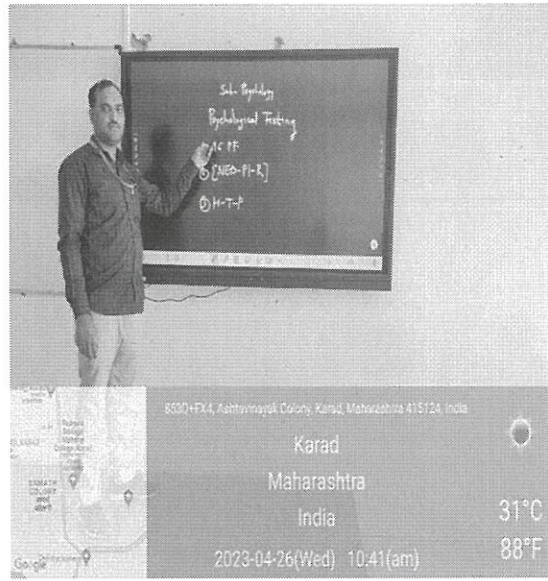 Sub- Psychology
Psychological Testing
① 16 PF
② [NEO-PI-R]
③ H-T-P
853Q+FX4, Ashtavinayak Colony, Karad, Maharashtra 415124, India
Karad
Maharashtra
India
2023-04-26(Wed) 10:41(am)
31°C
88°F
Google